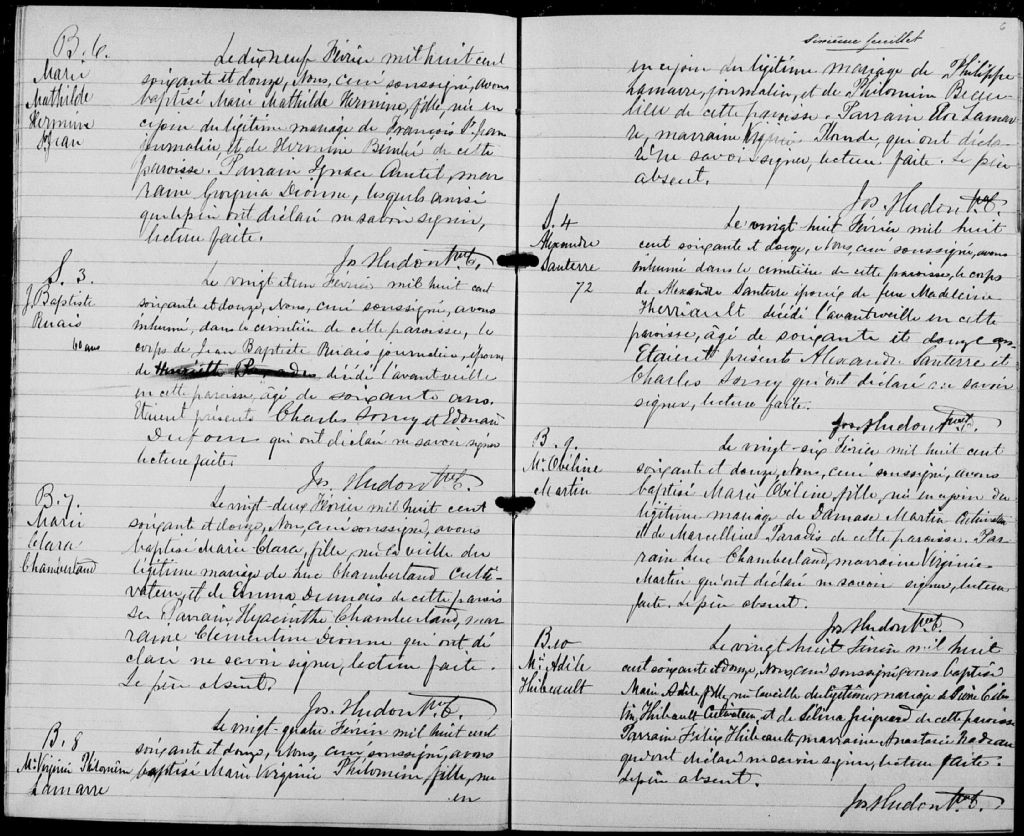 B. 6.
Marie
Mathilde
Hermine
St Jean
Le dix neuf Février mil huit cent
soixante et douze, Nous, curé soussigné, avons
baptisé Marie Mathilde Hermine, fille, née en
ce jour du légitime mariage de François St Jean
journalier et de Hermine Bérubé de cette
paroisse. Parrain Ignace Autil, mar
raine Georgina Dionne, lesquels ainsi
que le père ont déclaré ne savoir signer,
lecture faite.
Jos Hudon Ptre C.
S. 3
J. Baptiste
Ruais
60 ans
Le vingt et un Février mil huit cent
soixante et douze, Nous, curé soussigné, avons
inhumé, dans le cimetière de cette paroisse, le
corps de Jean Baptiste Ruais journalier, époux
de décédé l'avant veille
en cette paroisse, âgé de soixante ans.
Etaient présents Charles Sorey et Edouard
Dufour qui ont déclaré ne savoir signer
lecture faite.
Jos. Hudon Ptre C.
B. 7.
Marie
Clara
Chamberland
Le vingt-deux Février mil huit cent
soixante et douze, Nous, curé soussigné, avons
baptisé Marie Clara, fille, née la veille du
légitime mariage de Luc Chamberland Culti-
vateur, et de Emma Deumais de cette parois
se. Parrain Hyacinthe Chamberland, mar
raine Clementine Dionne qui ont dé
claré ne savoir signer, lecture faite.
Le père absent.
Jos. Hudon Ptre C.
B. 8
Me Virginie Philomène
Lamarre
Le vingt-quatre Février mil huit cent
soixante et douze, Nous, curé soussigné, avons
baptisé Marie Virginie Philomène, fille, née
en
Sixième feuillet
6
en ce jour du légitime mariage de Philippe
Lamarre, journalier, et de Philomène Beau-
lieu de cette paroisse. Parrain Eloi Lamar
re, marraine Plourde, qui ont décla-
ré ne savoir signer, lecture faite. Le père
absent.
Jos. Hudon Ptre C.
S. 4
Alexandre
Santerre
72
Le vingt-huit Février mil huit
cent soixante et douze, Nous, curé soussigné, avons
inhumé dans le cimetière de cette paroisse, le corps
de Alexandre Santerre époux de feue Madeleine
Therriault décédé l'avant veille en cette
paroisse, âgé de soixante et douze ans
Etaient présents Alexandre Santerre et
Charles Sorey qui ont déclaré ne savoir
signer, lecture faite.
Jos Hudon Ptre C.
B. 9.
Me Obéline
Martin
Le vingt-six Février mil huit cent
soixante et douze, Nous, curé soussigné, avons
baptisé Marie Obéline fille, née en ce jour du
légitime mariage de Damase Martin Cultivateur
et de Marcelline Paradis de cette paroisse. Par
rain Luc Chamberland, marraine Virginie
Martin qui ont déclaré ne savoir signer, lecture
faite. Le père absent.
Jos Hudon Ptre C.
B. 10
Me Adèle
Thibeault
Le vingt huit Février mil huit
cent soixante et douze, Nous, curé soussigné avons baptisé
Marie Adèle fille, née la veille du légitime mariage de Pierre Céles
tin Thibault Cultivateur, et de Sélina Guignard de cette paroisse
Parrain Félix Thibeault, marraine Anastasie Nadeau
qui ont déclaré ne savoir signer, lecture faite.
Le père absent.
Jos Hudon Ptre C.